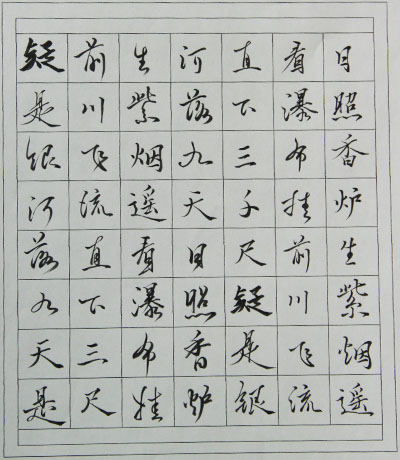 日照香炉生紫烟遥
看瀑布挂前川飞流
直下三千尺疑是银
河落九天日照香炉
生紫烟遥看瀑布挂
前川飞流直下三尺
疑是银河落九天是